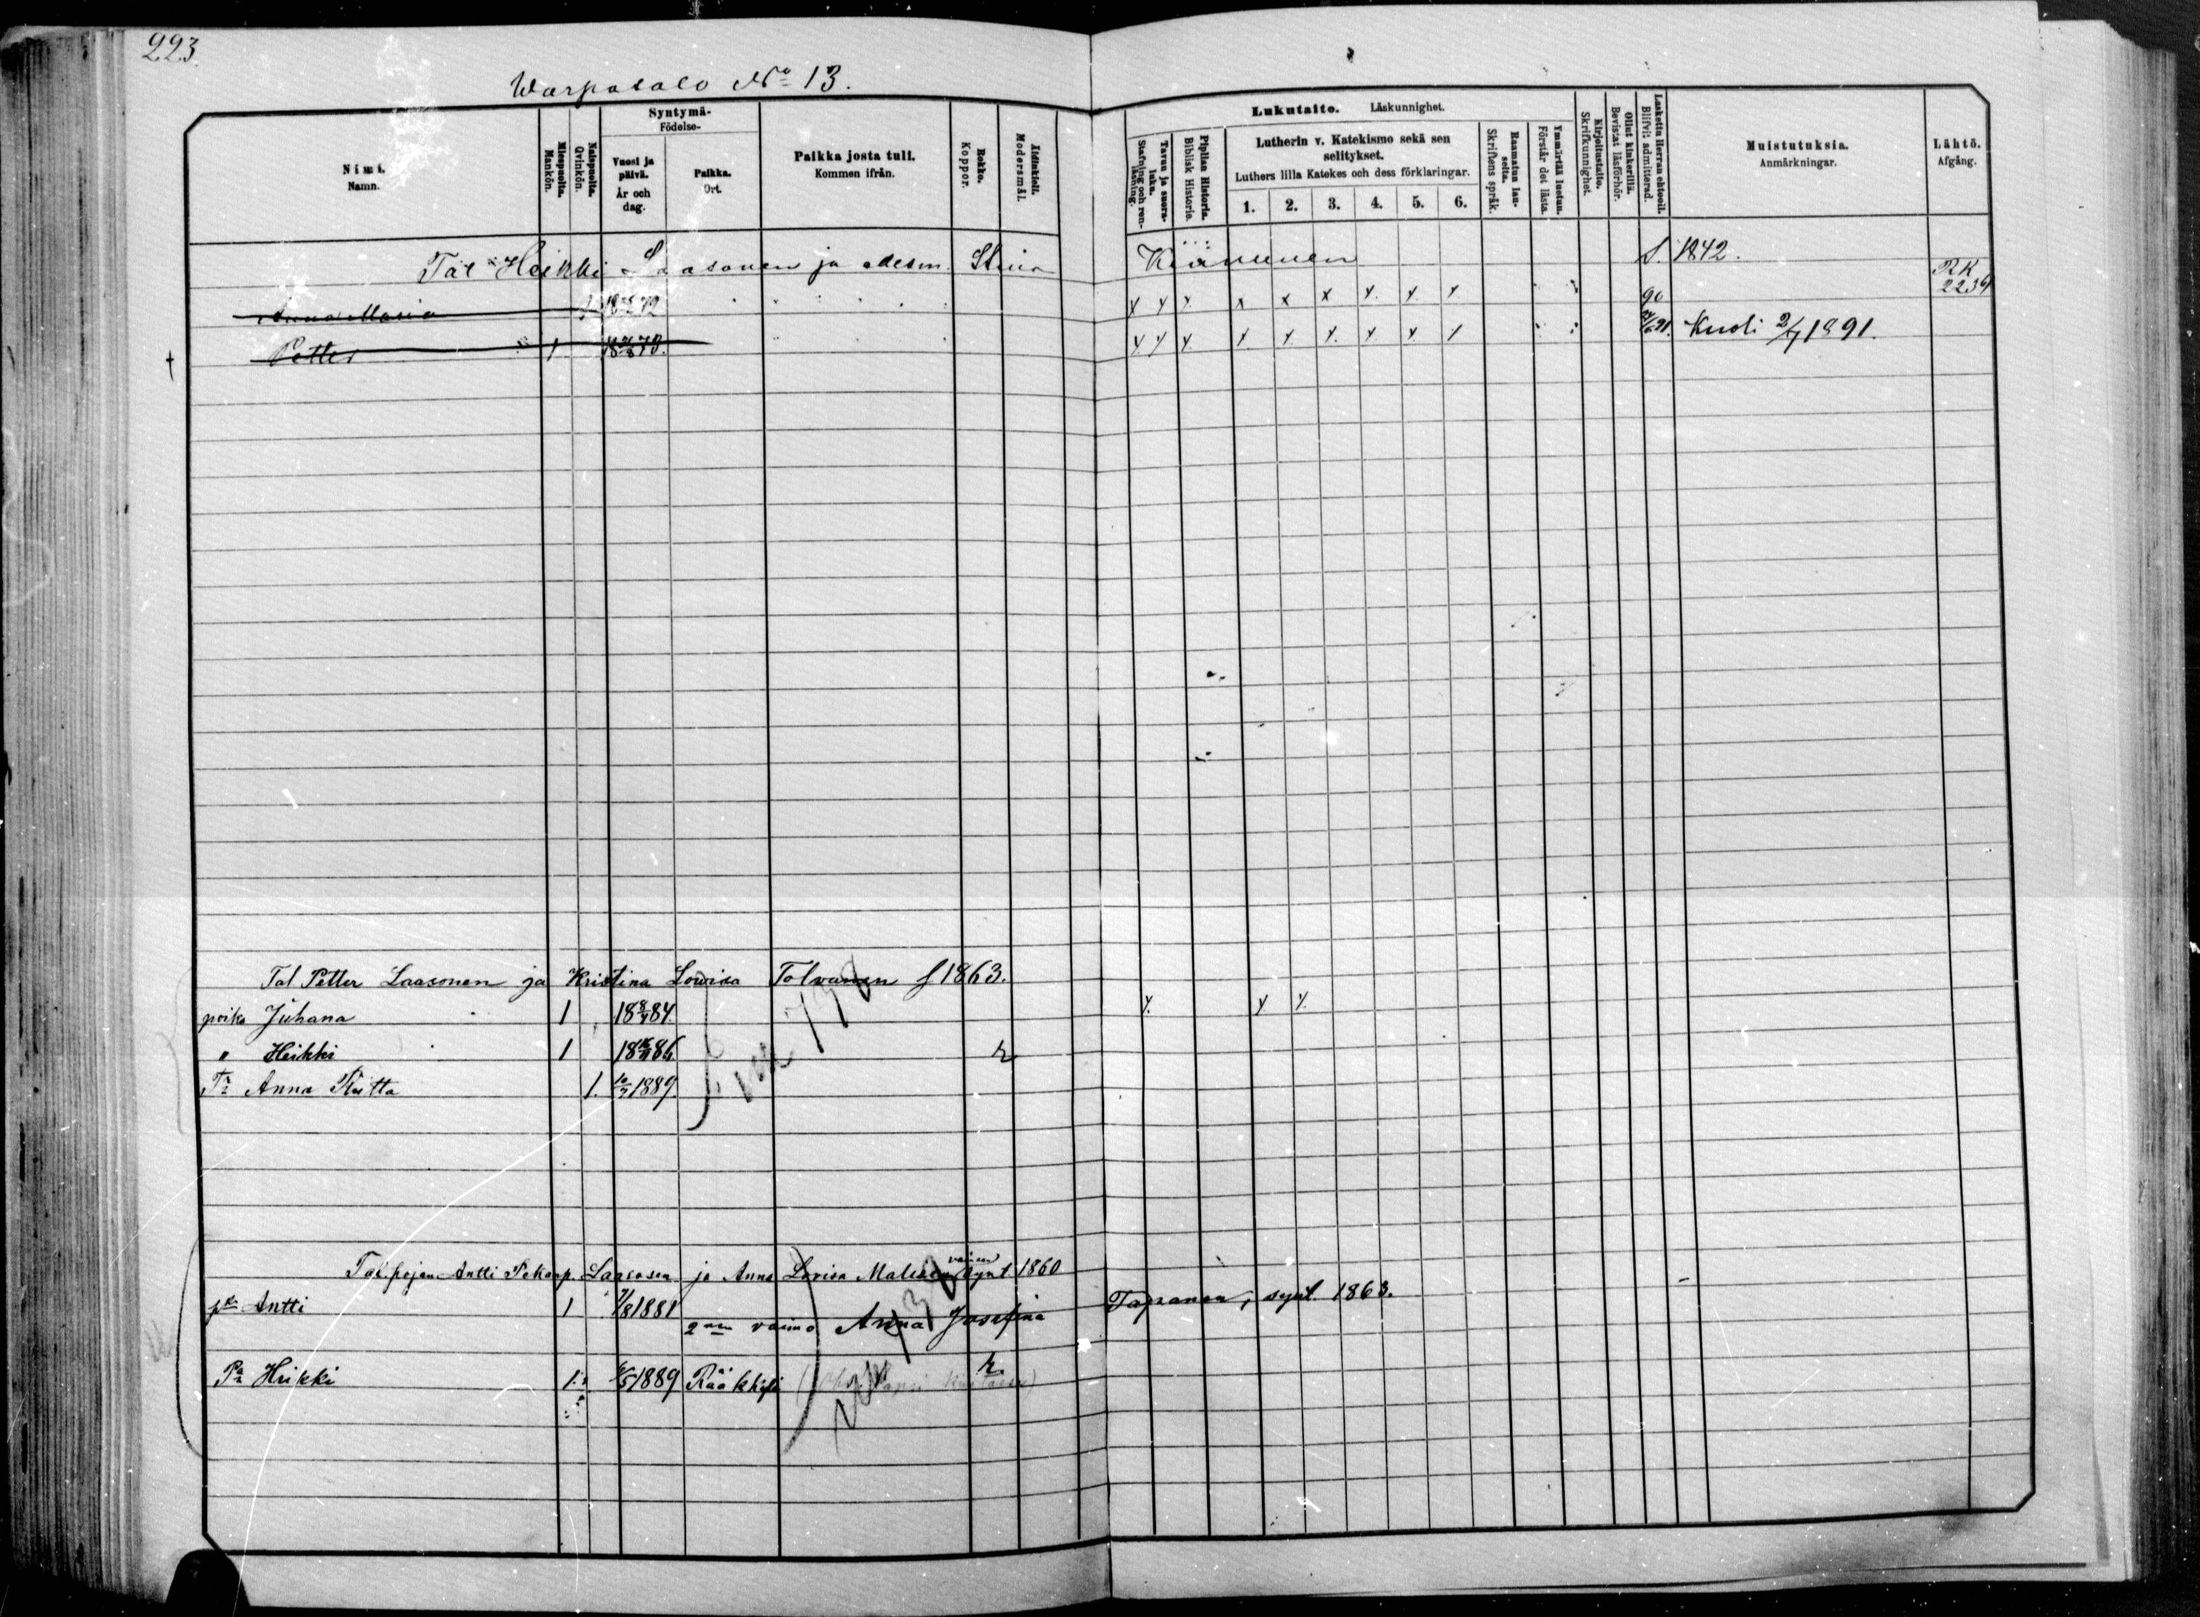 223.
Warpasalo No 13.
Nimi.
Namn.
Miespuolta.
Mankön.
Naispuolta.
Qvinkön.
Syntymä-
Födelse-
Vuosi ja päivä.
År och dag.
Paikka.
Ort.
Paikka josta tuli.
Kommen ifrån.
Rokko.
Koppor.
Äidinkieli.
Modersmål.
Lukutaito. Läskunnighet.
Tavuu ja suora-luku.
Stafning och ren-läsning.
Piplian Historia.
Biblisk Historie.
Lutherin v. Katekismo sekä sen selitykset.
Luthers lilla Katekes och dess förklaringar.
1. 2. 3. 4. 5. 6.
Raamatun lau-seita.
Skriftens språk.
Ymmärtää luetun.
Förstår det lästa.
Kirjoitustaito.
Skrifkunnighet.
Ollut kinkerillä.
Bevistat läsförhör.
Laskettu Herran ehtool.
Blifvit admitterad.
Muistutuksia.
Anmärkningar.
Lähtö.
Afgång.
Tal Heikki Laasonen ja edesm. Stina S. 1842.
Anna Maria 1 1872 x x x x x x x x x 90 RK 2239
† Petter 1 1873. x x x x x x x x x Kuoli 2/7 1891.
Tal Petter Laasonen ja Kristina Lowisa Tolvanen s 1863.
poika Juhana 1 1884. x x x
" Heikki 1 1886 r
Tr Anna Riitta 1. 10/7 1889.
Tal. pojan Antti Pekanp. Laasosen ja Anna Lovisa Malisen vainen synt 1860
pka Antti 1 7/8 1881
2nen vaimo Anna Josefina Tapanen, synt. 1863.
Pa Heikki 1. 6/5 1889 Rääkkylä r